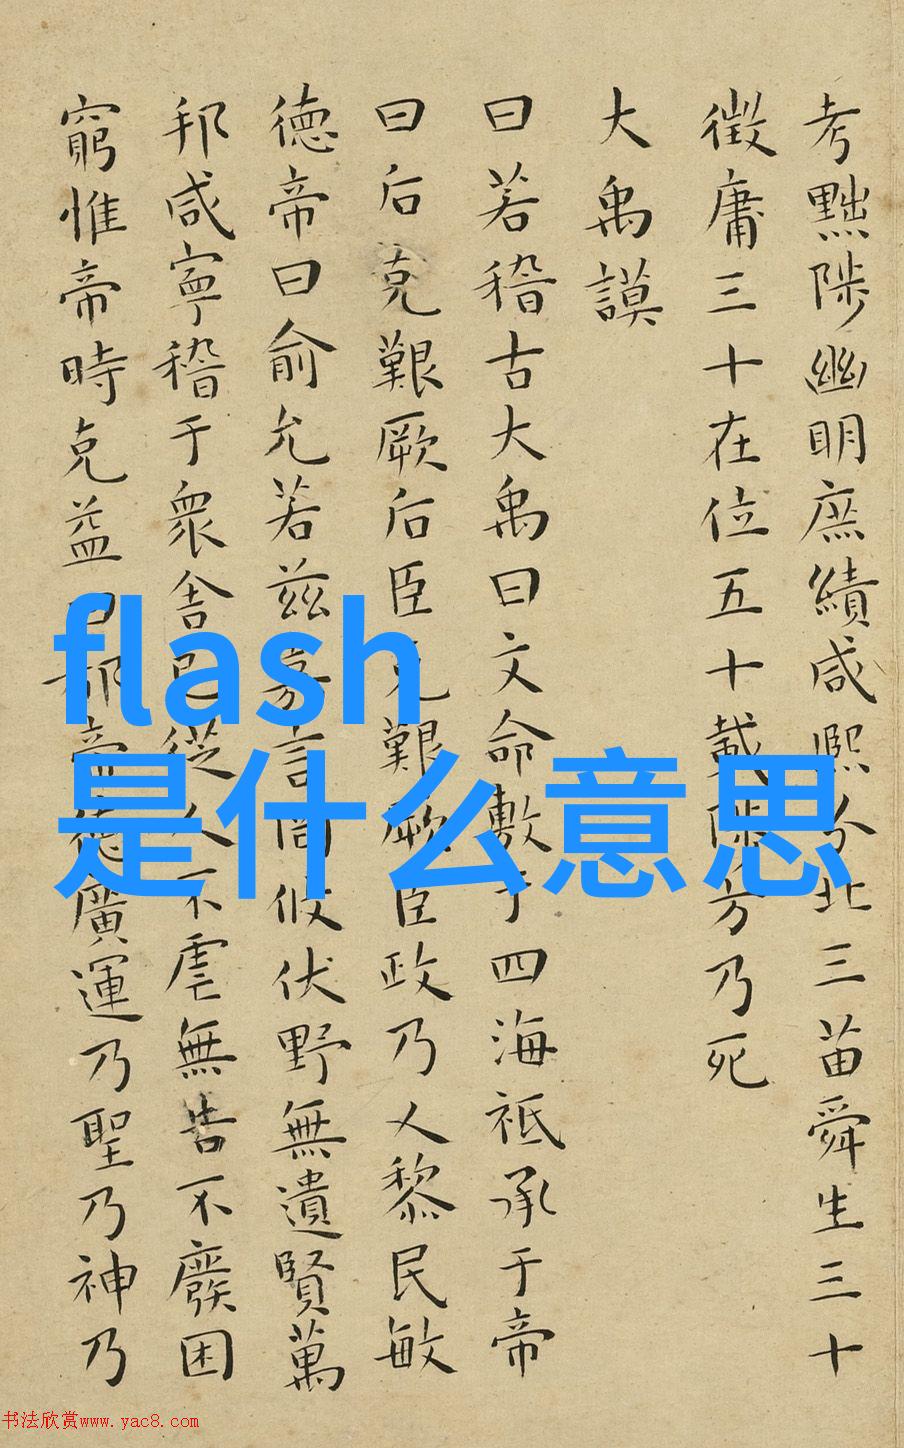 考黜陟幽明庶績咸熙分北三苗舜生三十
徵庸三十在位五十載陟方乃死
大禹謨
曰若稽古大禹曰文命敷于四海祗承于帝
曰后克艱厥后臣克艱厥臣政乃乂黎民敏
德帝曰俞允若茲嘉言罔攸伏野無遺賢萬
邦咸寧稽于衆舍己從人不虐無告不廢困
窮惟帝時克益曰都帝德廣運乃聖乃神乃
flash
是什么意思
书法欣赏www.yac8.com